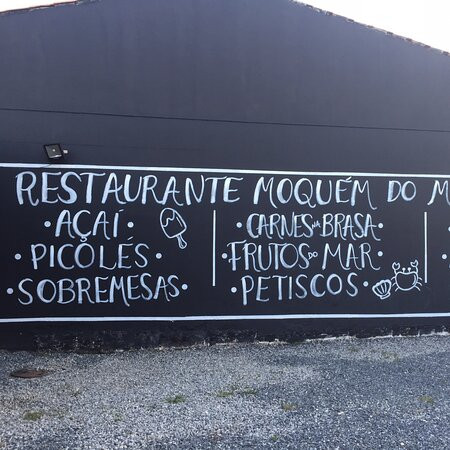 RESTAURANTE MOQUÉM DO M
• AÇAÍ •
• PICOLÉS •
• SOBREMESAS •
• CARNES NA BRASA •
• FRUTOS DO MAR •
• PETISCOS •